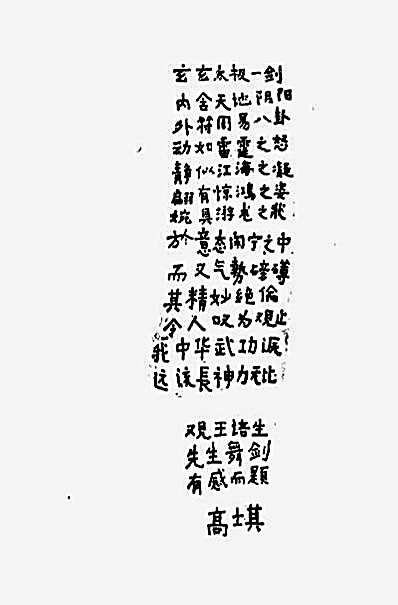 玄玄太极一剑
内含天地阴阳
外符周易八卦
动如雷霆之怒
静似江海之凝
翩有惊鸿之姿
婉具游龙之我
于意态闲宁之中
而又气势磅礴
其精妙绝伦
令人叹为观止
我中华武功诚
远源長神力无比
观王培生
先生舞剑
有感而题
高士其